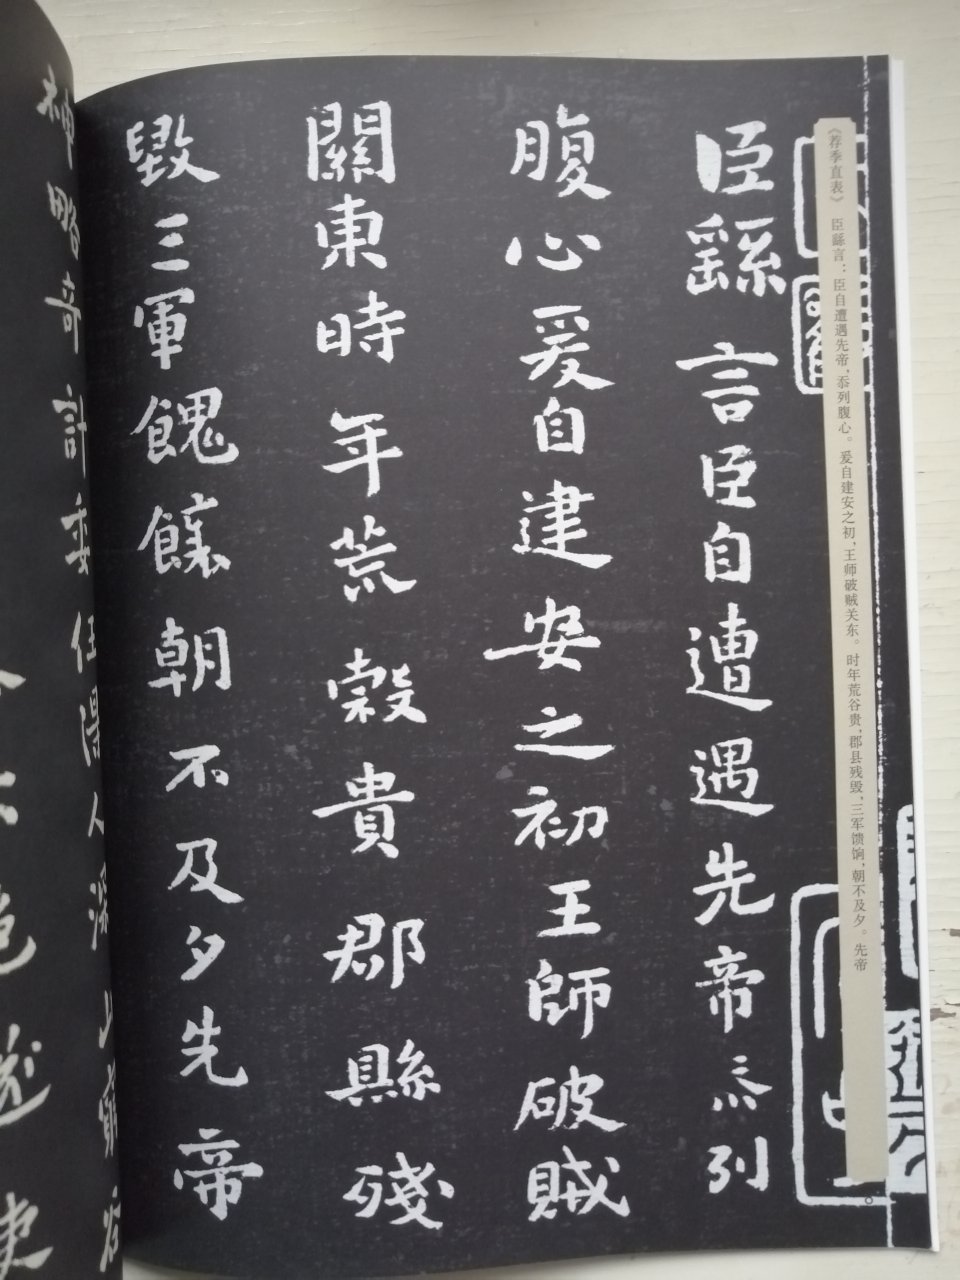 《荐季直表》 臣繇言：臣自遭遇先帝，忝列腹心。爰自建安之初，王师破贼关东。时年荒谷贵，郡县残毁，三军馈饷，朝不及夕。先帝
臣繇言臣自遭遇先帝忝列
腹心爰自建安之初王師破賊
關東時年荒穀貴郡縣殘
毀三軍餽饟朝不及夕先帝
神略奇計委任得人深山窮谷